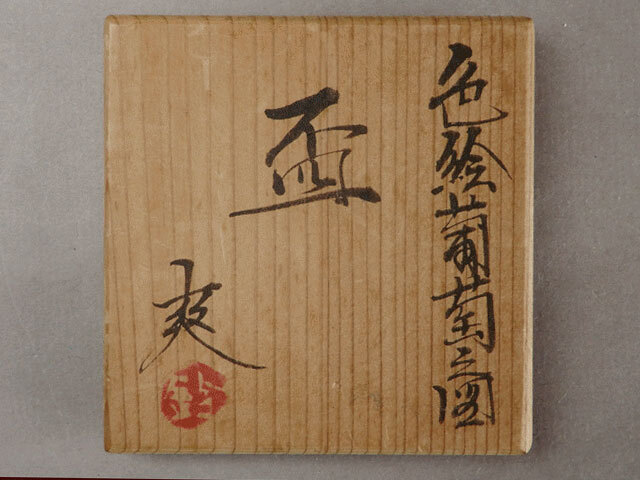 色絵葡萄之図
盃
爽